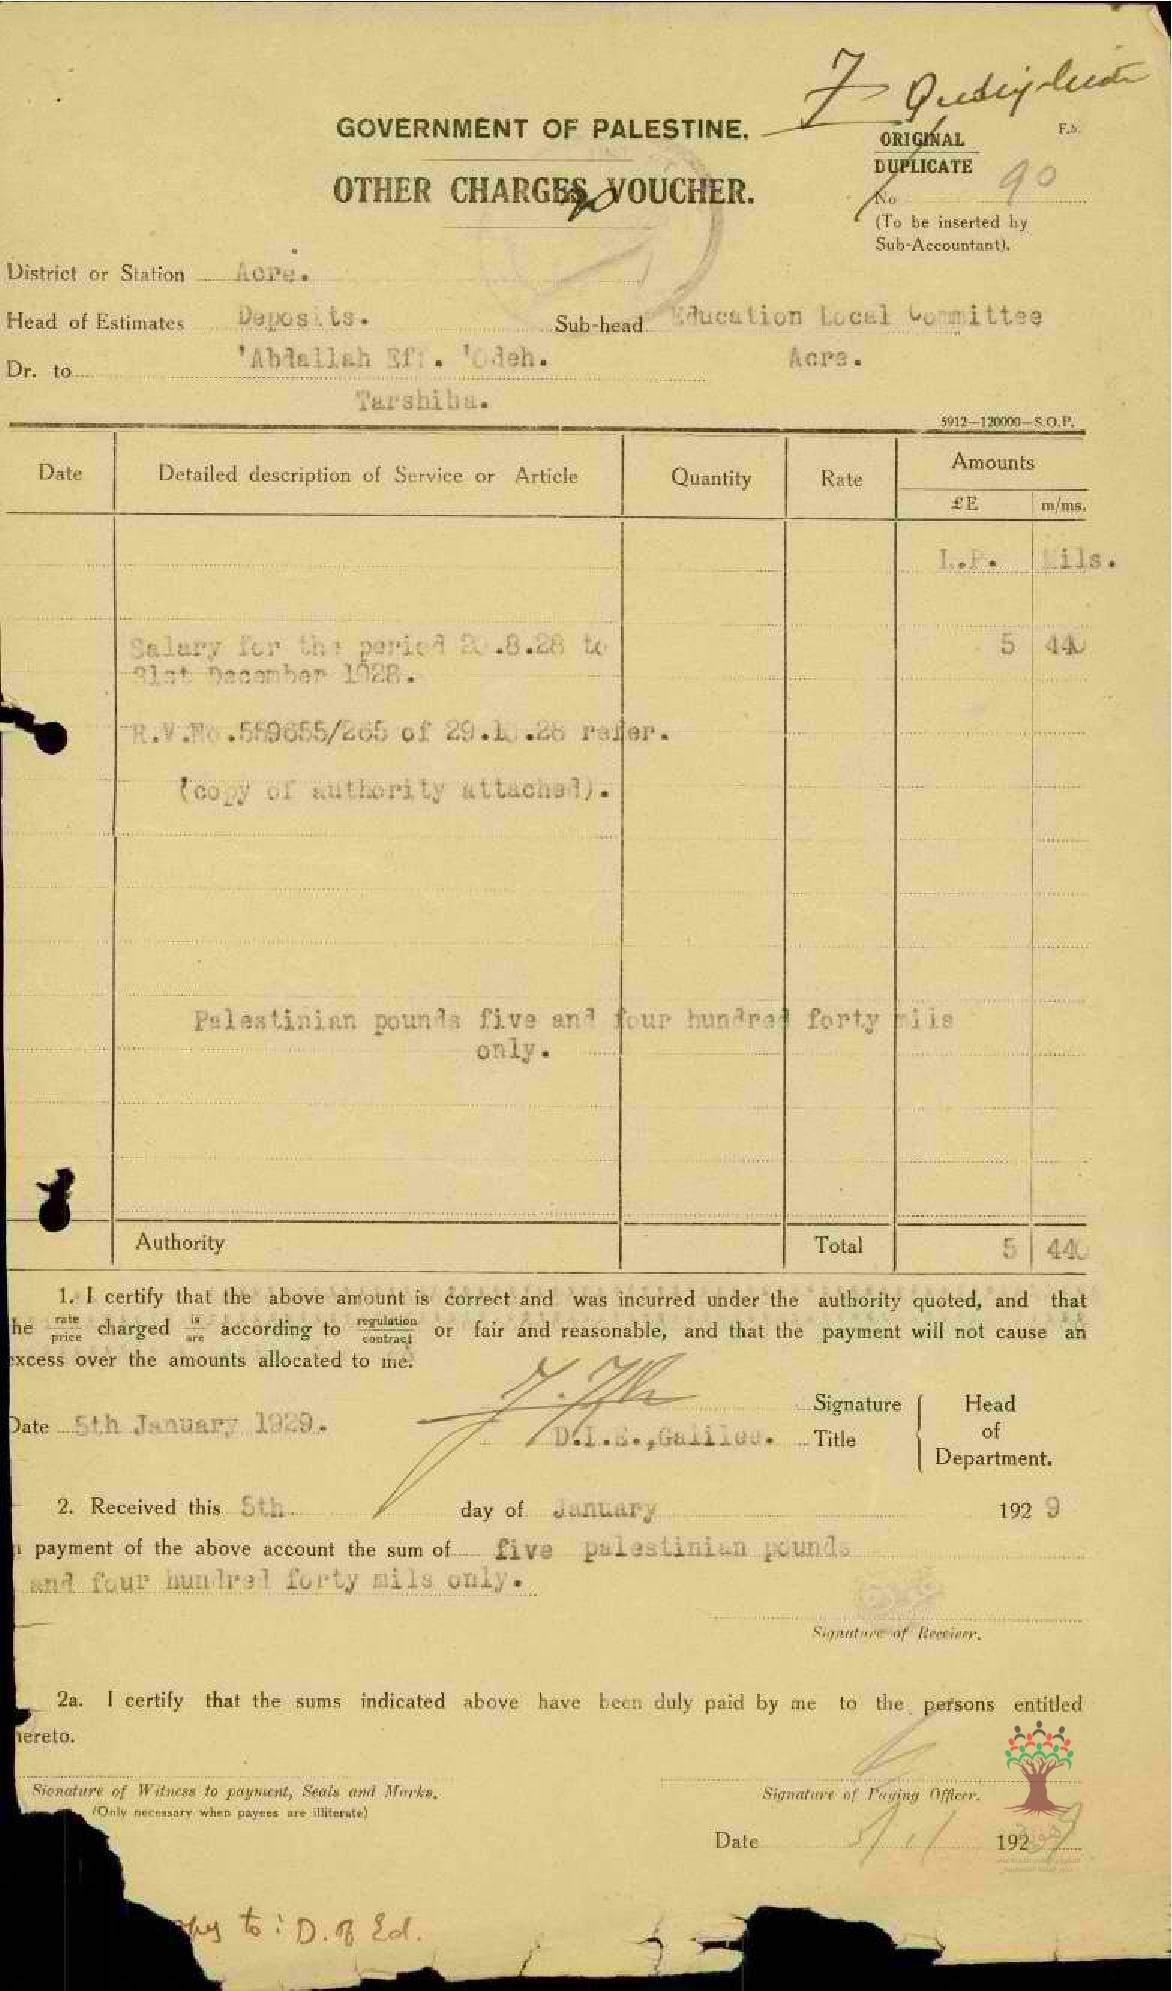 GOVERNMENT OF PALESTINE.
OTHER CHARGES VOUCHER.
90
F.5.
ORIGINAL
DUPLICATE
No 90
(To be inserted by
Sub-Accountant).
District or Station Acre.
Head of Estimates Deposits. Sub-head Education Local Committee
Dr. to 'Abdallah Eff. 'Odeh. Acre.
Tarshiha.
5912—120000—S.O.P.
Date Detailed description of Service or Article Quantity Rate Amounts
£E m/ms.
L.P. Mils.
Salary for the period .8.28 to 5 440
31st December 1928.
R.V.No.559655/265 of 29. .28 refer.
(copy of authority attached).
Palestinian pounds five and four hundred forty mils
only.
Authority Total 5 440
1. I certify that the above amount is correct and was incurred under the authority quoted, and that
he rate/price charged is/are according to regulation/contract or fair and reasonable, and that the payment will not cause an
xcess over the amounts allocated to me.
Date 5th January 1929. Signature Head
D.I.E.,Galilee. Title of
Department.
2. Received this 5th day of January 1929
payment of the above account the sum of five palestinian pounds
and four hundred forty mils only.
Signature of Receiver.
2a. I certify that the sums indicated above have been duly paid by me to the persons entitled
hereto.
Signature of Witness to payment, Seals and Marks. Signature of Paying Officer.
(Only necessary when payees are illiterate)
Date 5/1/ 1929
to: D. of Ed.